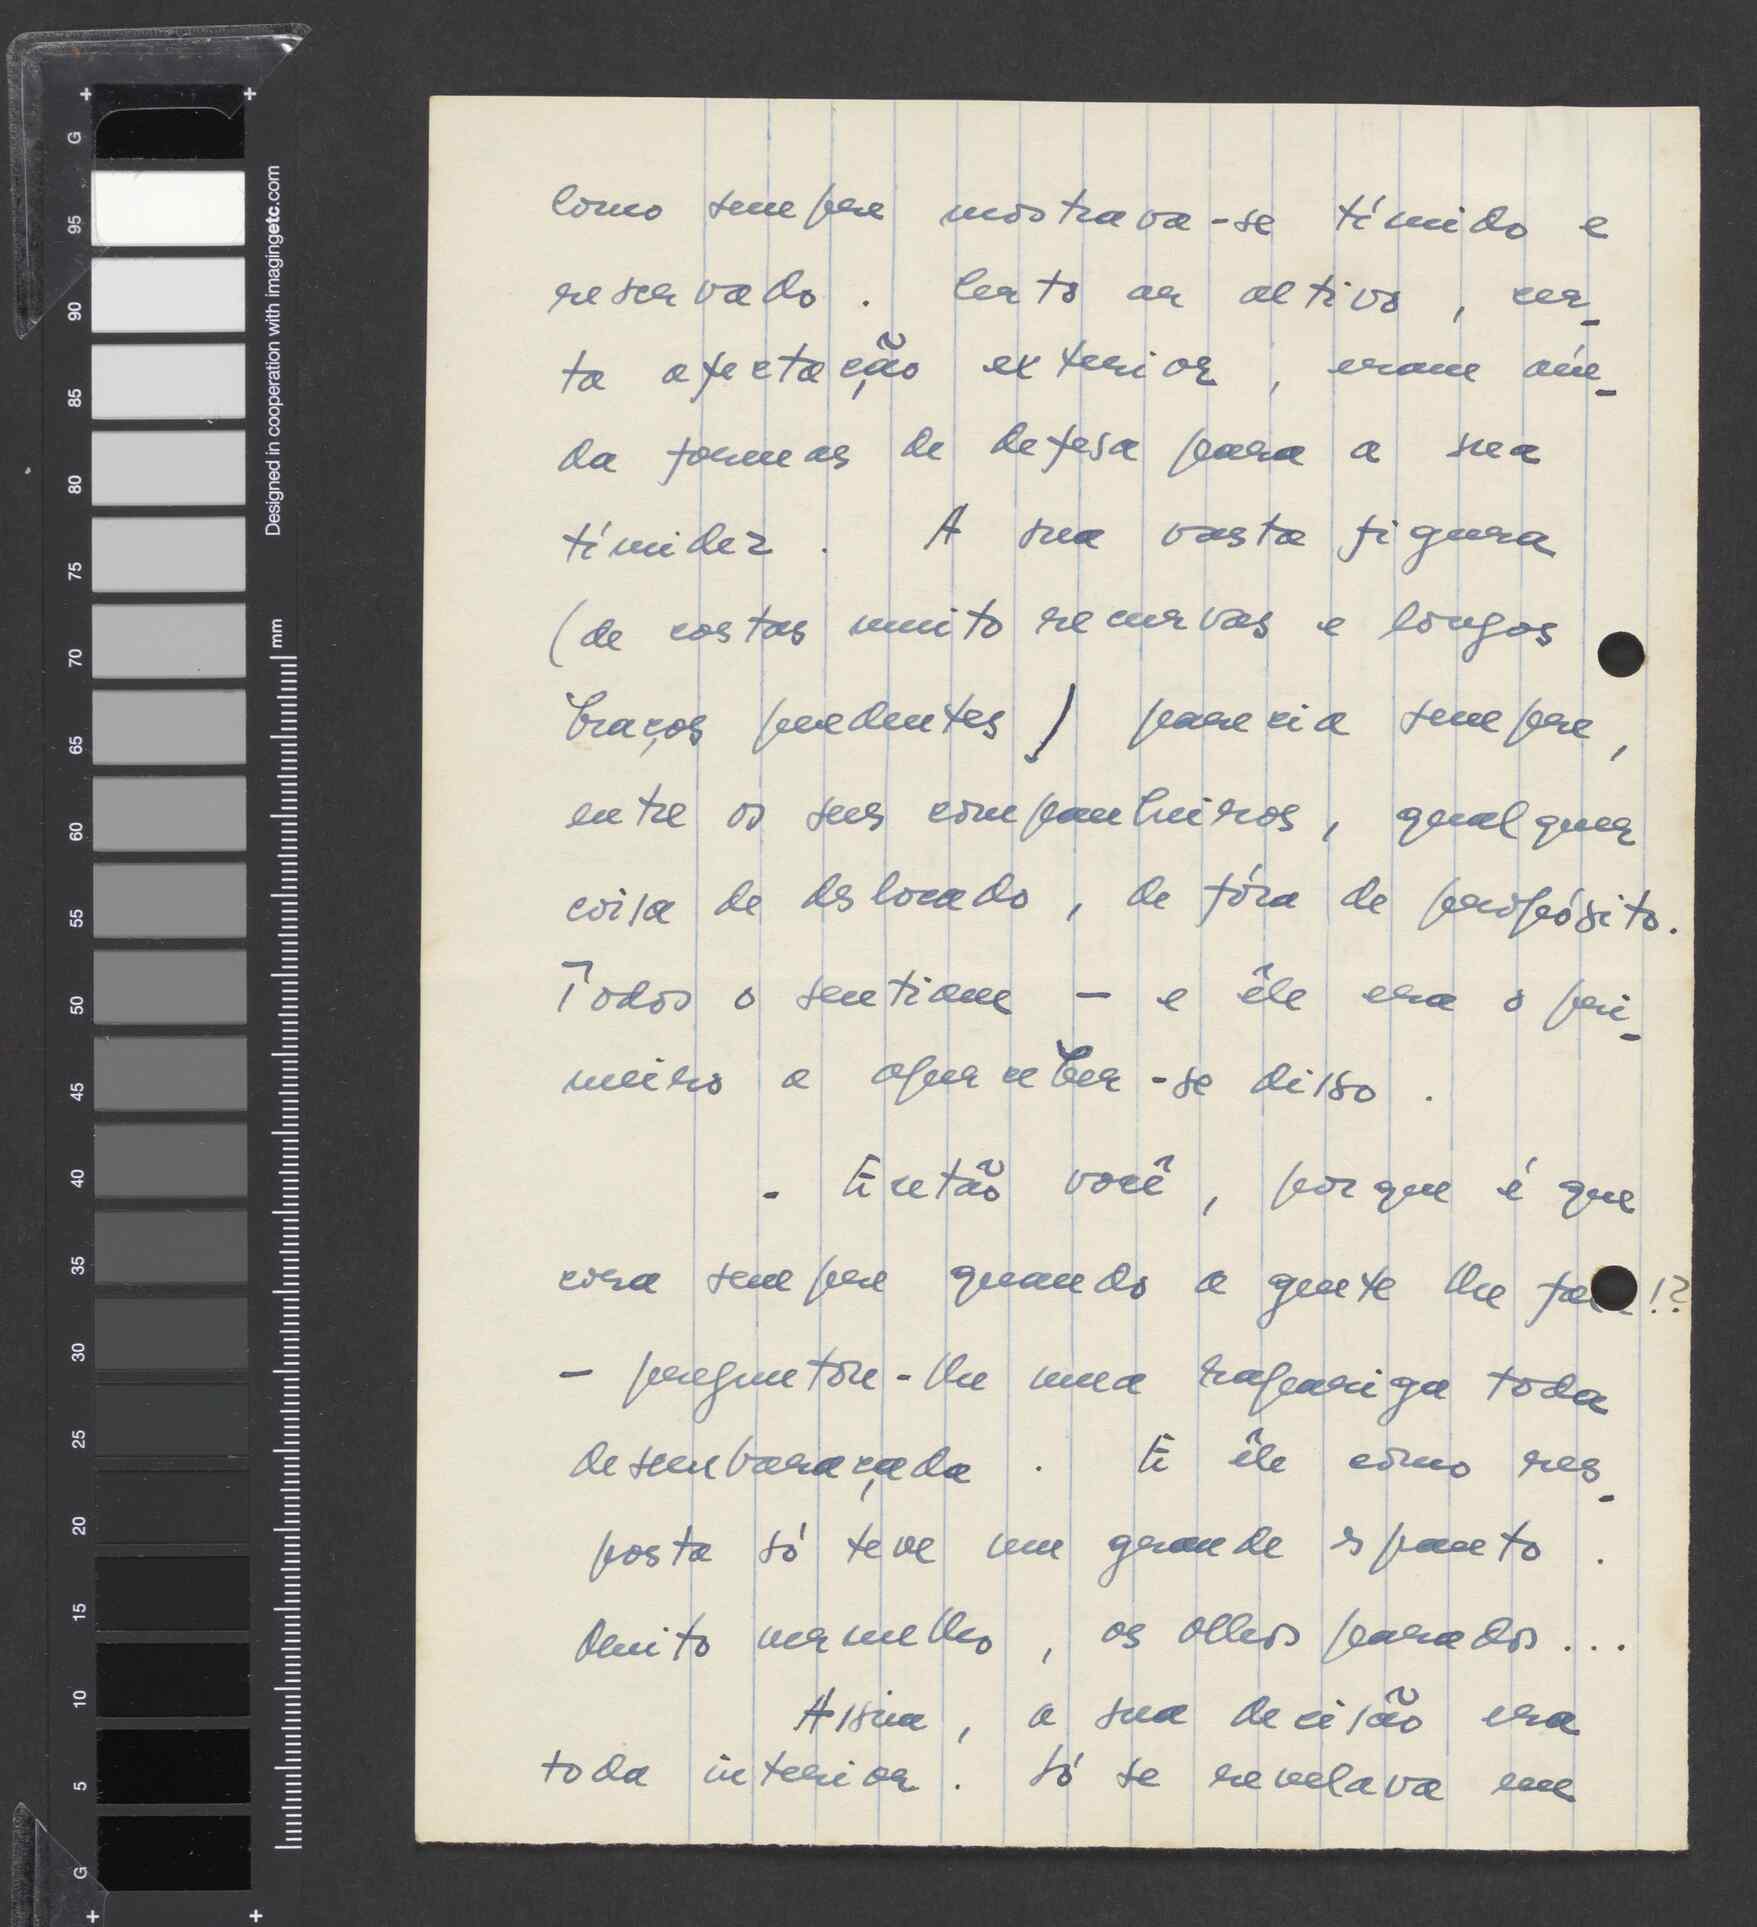 Como sempre mostrava-se tímido e
reservado. Certo ar altivo, cer-
ta afectação exterior, eram ain-
da formas de defesa para a sua
tímidez. A sua vasta figura
(de costas muito recurvas e longos
braços pendentes) parecia sempre,
entre os seus companheiros, qualquer
coisa de deslocado, de fóra de propósito.
Todos o sentiam — e êle era o pri-
meiro a aperceber-se disso.
- Então você, porque é que
cora sempre quando a gente lhe !?
— preguntou-lhe uma rapariga toda
desembaraçada. E êle como res-
posta só teve um grande espanto.
Muito vermelho, os olhos parados...
Assim, a sua decisão era
toda interior. Só se revelava em
G 95 90 85 80 75 70 65 60 55 50 45 40 35 30 25 20 15 10 5 G
Designed in cooperation with imagingetc.com
mm